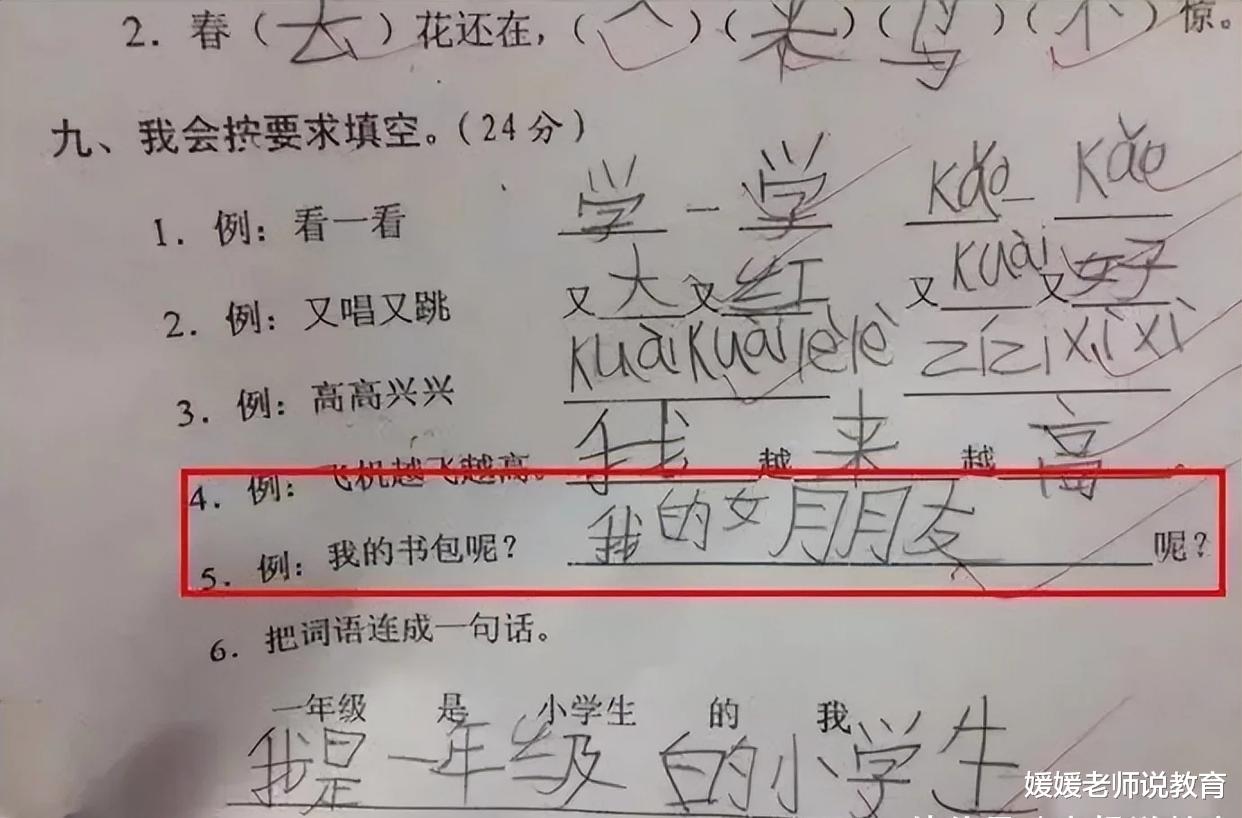 2. 春（去）花还在，（人）（来）（鸟）（不）惊。
九、我会按要求填空。（24分）
1. 例：看一看 学一学 kǎo 一 kǎo
2. 例：又唱又跳 又大又红 又kuài又好
3. 例：高高兴兴 kuàikuàilèlè zízixìxì
4. 例：飞机越飞越高。 我越来越高。
5. 例：我的书包呢？ 我的女朋友呢？
6. 把词语连成一句话。
一年级 是 小学生 的 我
我是一年级的小学生
媛媛老师说教育